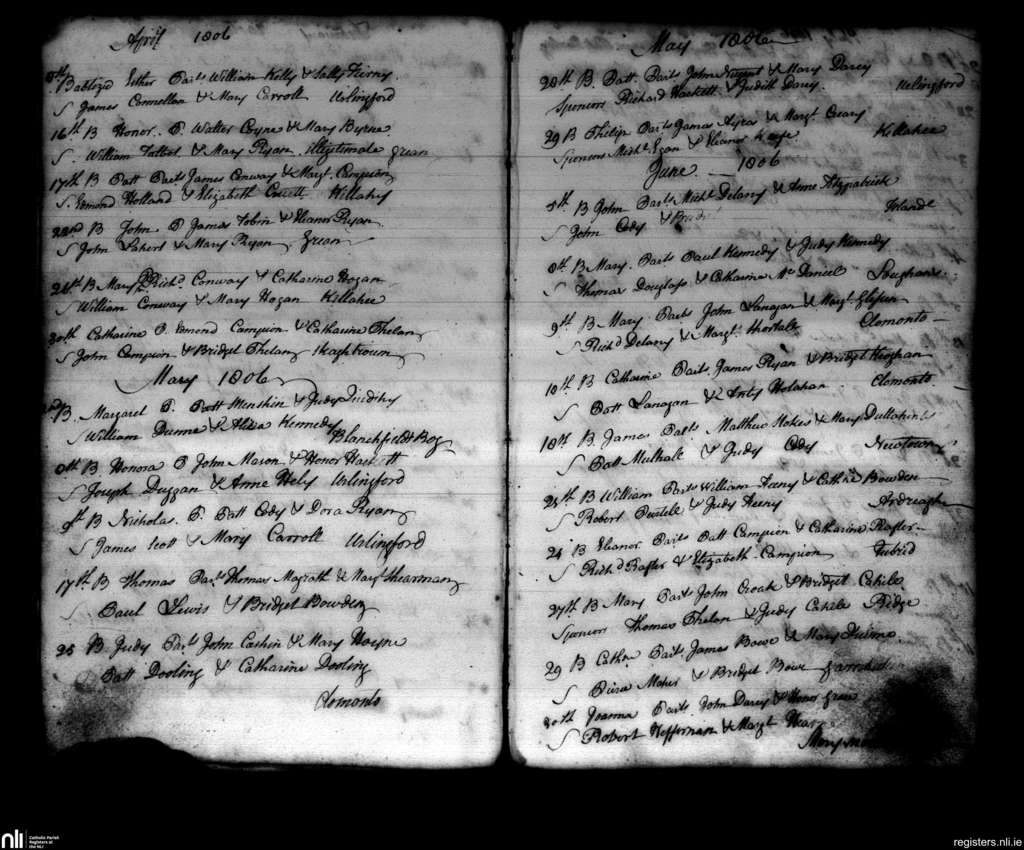 April 1806
Baptizd Esther Parts William Kelly & Sally
S James Connellan & Mary Carroll Urlingford
16th B Honor. P. Walter Coyne & Mary Byrne
S. William Talbot & Mary Ryan. illigtimate Grean
17th B Patt Parts James Conway & Margt. Campion
S. Edmond Holland & Elizabeth Killahy
22nd B John P James Tobin & Eleanor Ryan
S John Lahert & Mary Ryan Grean
B Mary P. Richd. Conway & Catharine Hogan
S William Conway & Mary Hogan Killahee
30th Catharine P. Edmond Campion & Catharine Phelan
S John Campion & Bridget Phelan
Mary 1806
B. Margaret P. Patt Menshin & Judy
S William Dunne & Alisa Kennedy Blanchfields Bog
8th B Honora P John Mason & Honor
S Joseph Duggan & Anne Hely Urlingford
9th B Nicholas. P. Patt Cody & Dora Ryan
S James Scott & Mary Carroll Urlingford
17th B Thomas Parts Thomas Magrath & Margt Shearman
S Paul Lewis & Bridget Bowden
25 B Judy Parts John Cashin & Mary Hoyne
Patt Dooling & Catharine Dooling
Clomonto
May 1806
28th B. Patt. Parts John Nugent & Mary Darcy
Sponsors Richard Hackett & Judith Darcy. Urlingford
29 B Philip Parts James Ayres & Margt Creary
Sponsors Michl. Egan & Eleanor Killahee
June 1806
5th B John Parts Michl Delany & Anne Fitzpatrick
S John Cody &
8th B Mary. Parts Paul Kennedy & Judy Kennedy
S Thomas Douglass & Catharine Mc Daniel
9th B Mary Parts John Lanagan & Margt. Glison
S Richd Delany & Margt. Clomonto
10th B Catharine Parts James Ryan & Bridget Heighan
S Patt Lanagan & Anty Holahan Clomonto
18th B James Parts Matthew Stokes & Mary Dullahin
S Patt Mulhale & Judy Cody Newtown
24th B William Parts William Feeny & Cathne Bowden
S Robert & Judy Feeny Ardreagh
24 B Eleanor Parts Patt Campion & Catharine Rafter
S Richd Rafter & Elizabeth Campion Tubrid
27th B Mary Parts John Croak & Bridget Cahile
Sponsors Thomas Phelan & Judy Cahile Ridge
29 B Cathne Parts James Bowe & Mary
S Pierce Maher & Bridget Bowe
30th Joanna Parts John Darcy & Honor Grace
S Robert Heffernan & Margt
nli
Catholic Parish
Registers at
the NLI
registers.nli.ie